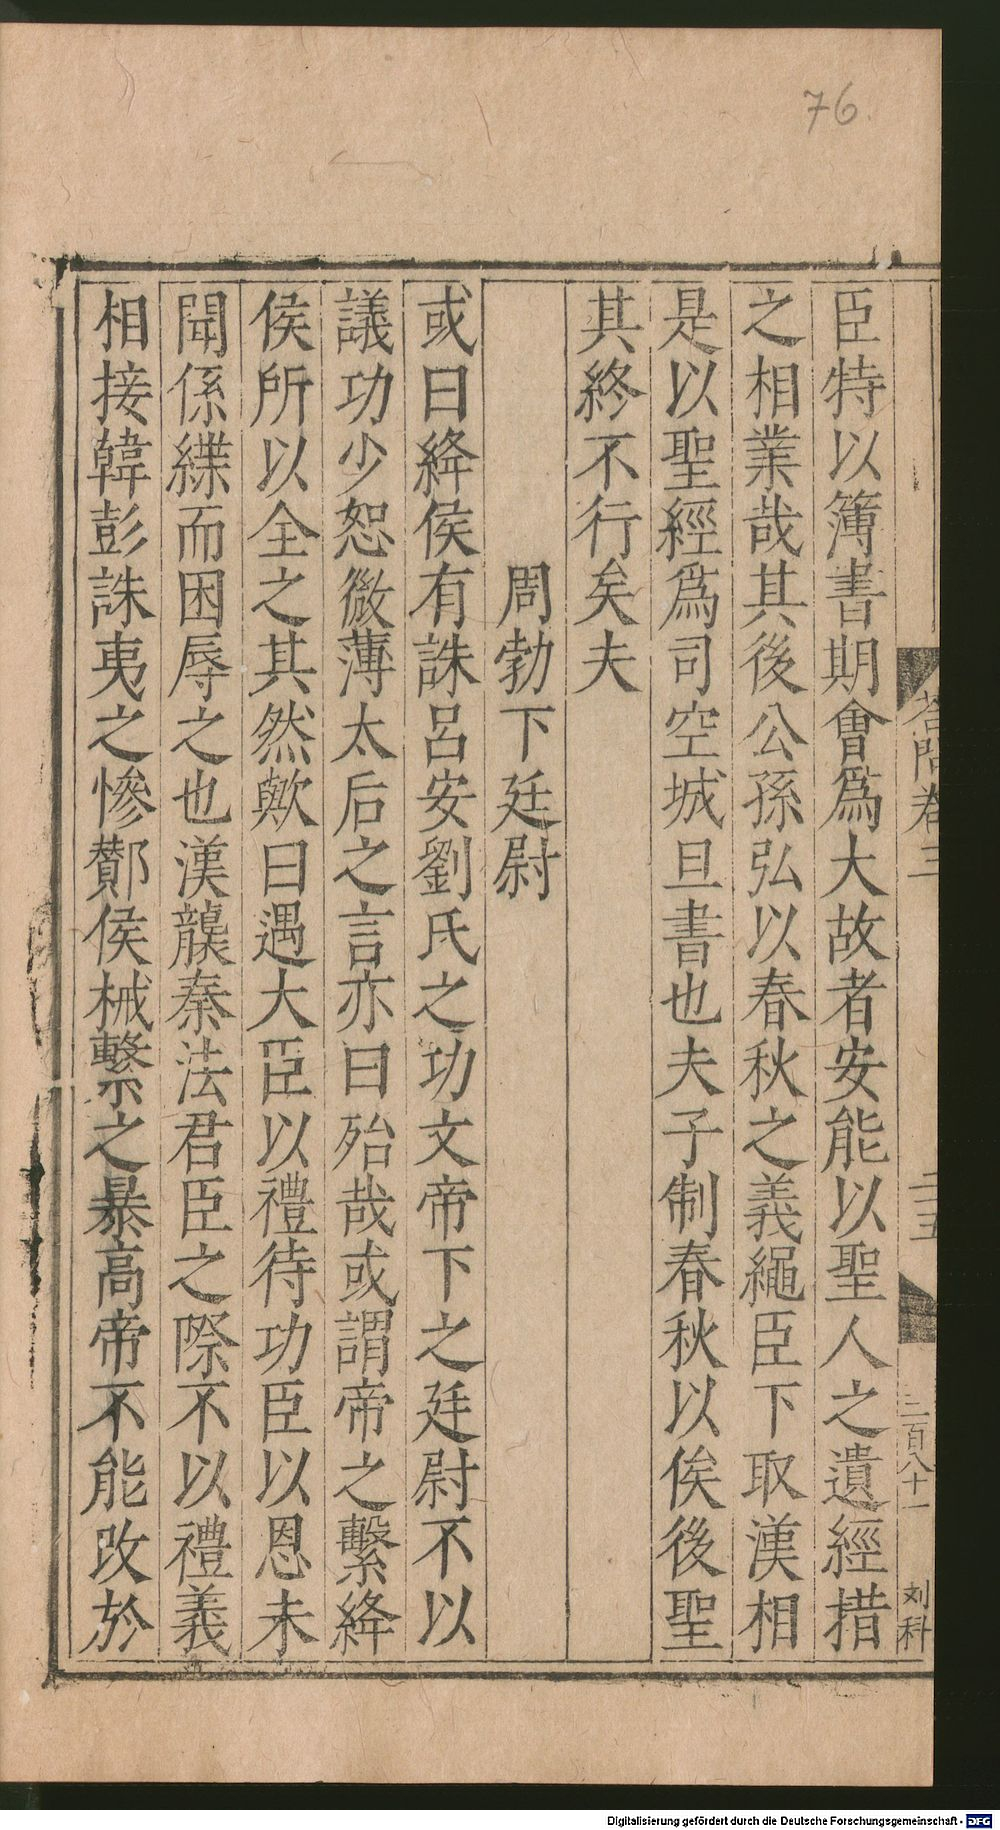 76
答問卷三
二十五
三百八十一
刘科
臣特以簿書期會爲大故者安能以聖人之遺經措
之相業哉其後公孫弘以春秋之義繩臣下取漢相
是以聖經爲司空城旦書也夫子制春秋以俟後聖
其終不行矣夫
周勃下廷尉
或曰絳侯有誅呂安劉氏之功文帝下之廷尉不以
議功少恕微薄太后之言亦曰殆哉或謂帝之繫絳
侯所以全之其然歟曰遇大臣以禮待功臣以恩未
聞係緤而困辱之也漢襲秦法君臣之際不以禮義
相接韓彭誅夷之慘酇侯械繫之暴高帝不能改於
Digitalisierung gefördert durch die Deutsche Forschungsgemeinschaft - DFG